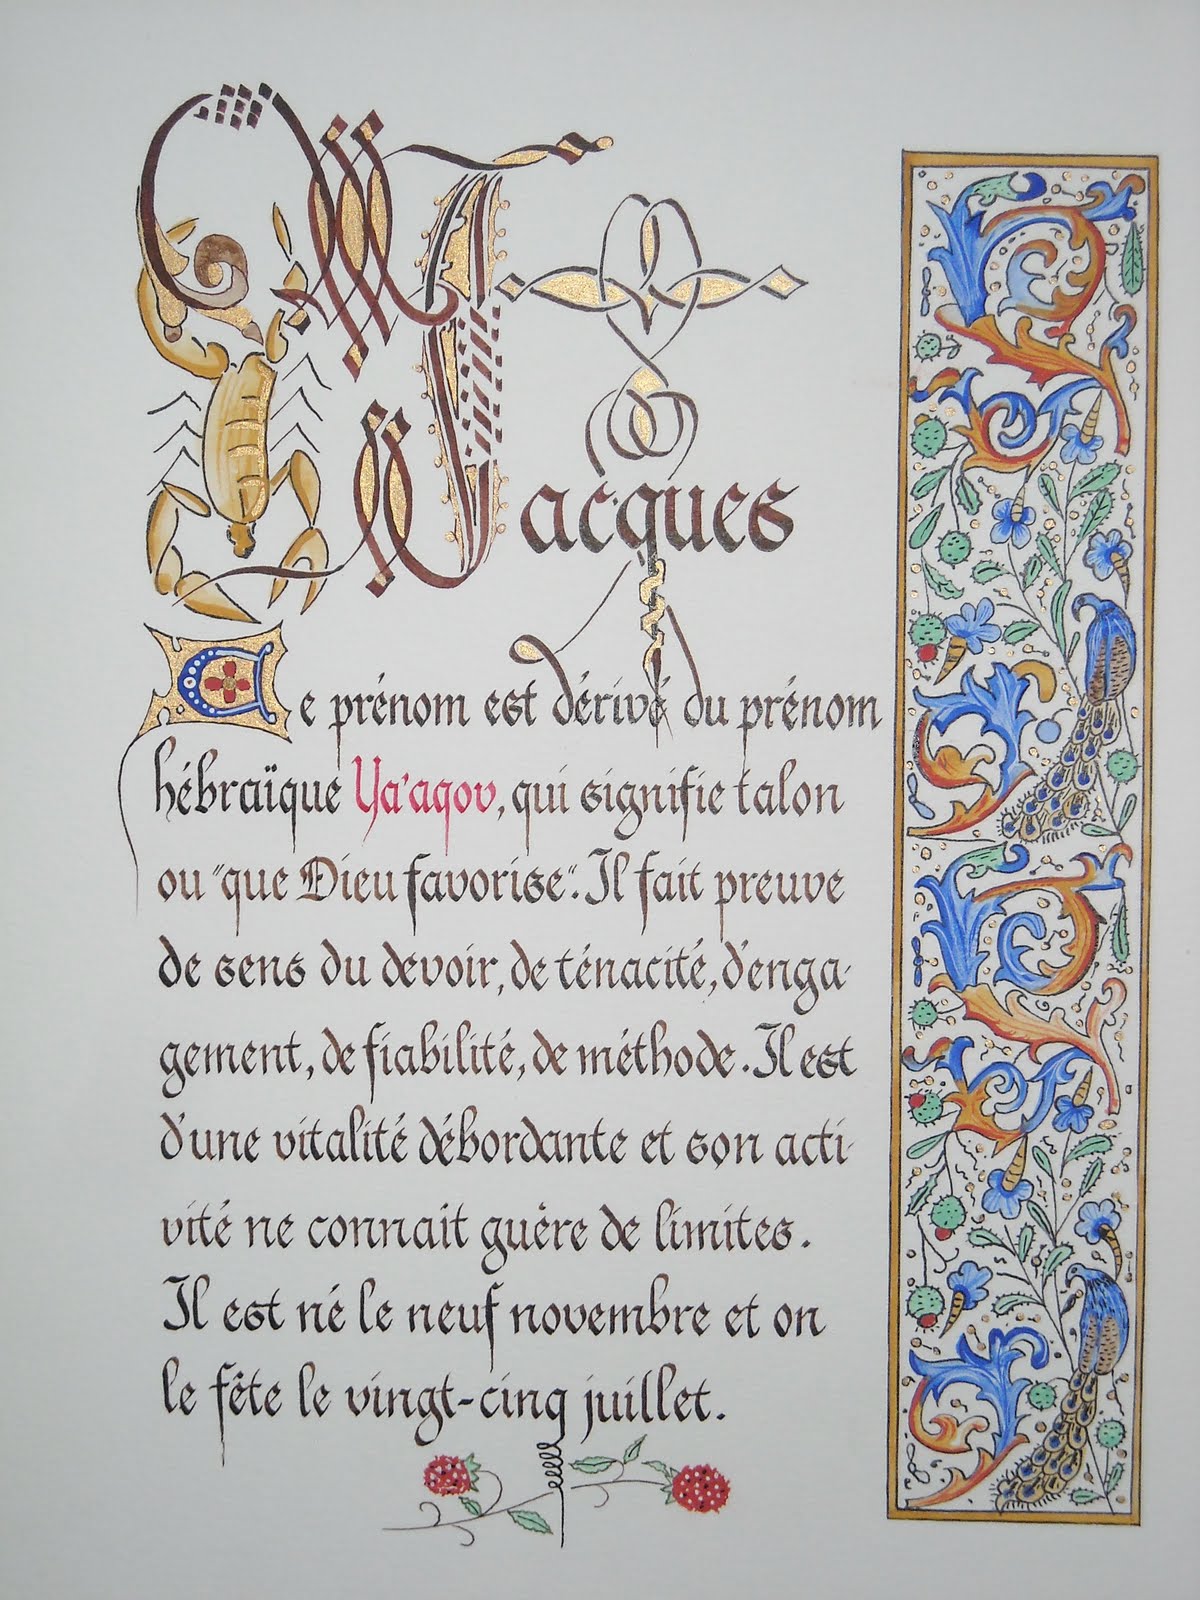 Jacques
Ce prénom est dérivé du prénom
hébraïque Ya'aqov, qui signifie talon
ou "que Dieu favorise". Il fait preuve
de sens du devoir, de ténacité, d'enga-
gement, de fiabilité, de méthode. Il est
d'une vitalité débordante et son acti-
vité ne connait guère de limites.
Il est né le neuf novembre et on
le fête le vingt-cinq juillet.